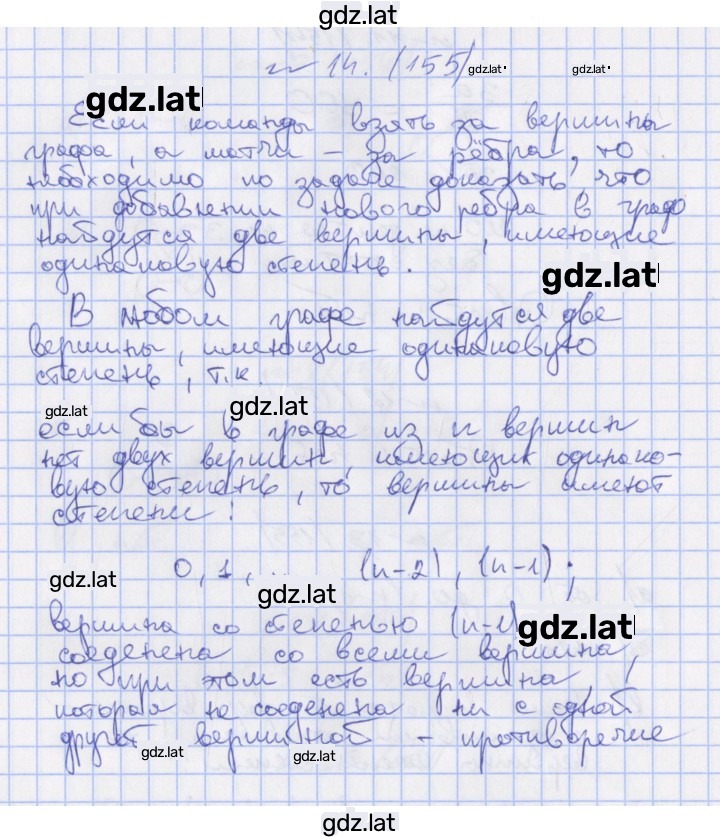 gdz.lat
№ 14. (155) gdz.lat gdz.lat
gdz.lat
Если команды взять за вершины
графа, а матчи - за рёбра, то
необходимо по задаче доказать, что
при добавлении нового ребра в графе
найдутся две вершины, имеющие
одинаковую степень.
gdz.lat
В любом графе найдутся две
вершины, имеющие одинаковую
степень, т.к.
gdz.lat gdz.lat
если бы в графе из n вершин
нет двух вершин, имеющих одинако-
вую степень, то вершины имеют
степени:
0, 1, ... (n-2), (n-1);
gdz.lat gdz.lat
вершина со степенью (n-1)
gdz.lat
соеденена со всеми вершина,
но при этом есть вершина,
которая не соеденена ни с одной
другой вершиной - противоречие
gdz.lat gdz.lat
gdz.lat